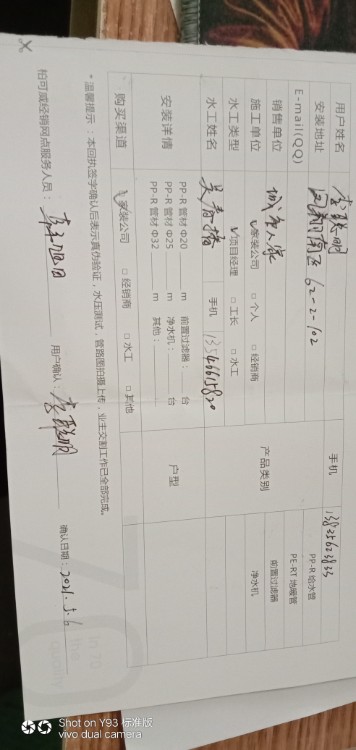 用户姓名 李联明 手机 13825623833
安装地址 凤新南区 62-2-102 PP-R 给水管
E-mail(QQ) PE-RT 地暖管
销售单位 城市人家 产品类别 前置过滤器
施工单位 √家装公司 □ 个人 □ 经销商 净水机
水工类型 √项目经理 □ 工长 □ 水工
水工姓名 手机 13546615820
安装详情 PP-R 管材 Φ20 m 前置过滤器: 台 户型
PP-R 管材 Φ25 m 净水机: 台
PP-R 管材 Φ32 m 其他:
购买渠道 √家装公司 □ 经销商 □ 水工 □ 其他
* 温馨提示:本回执签字确认后表示真伪验证,水压测试,管路图拍摄上传,业主交割工作已全部完成。
柏可威经销网点服务人员: 用户确认:李联明 确认日期:2021.5.6
Shot on Y93 标准版
vivo dual camera